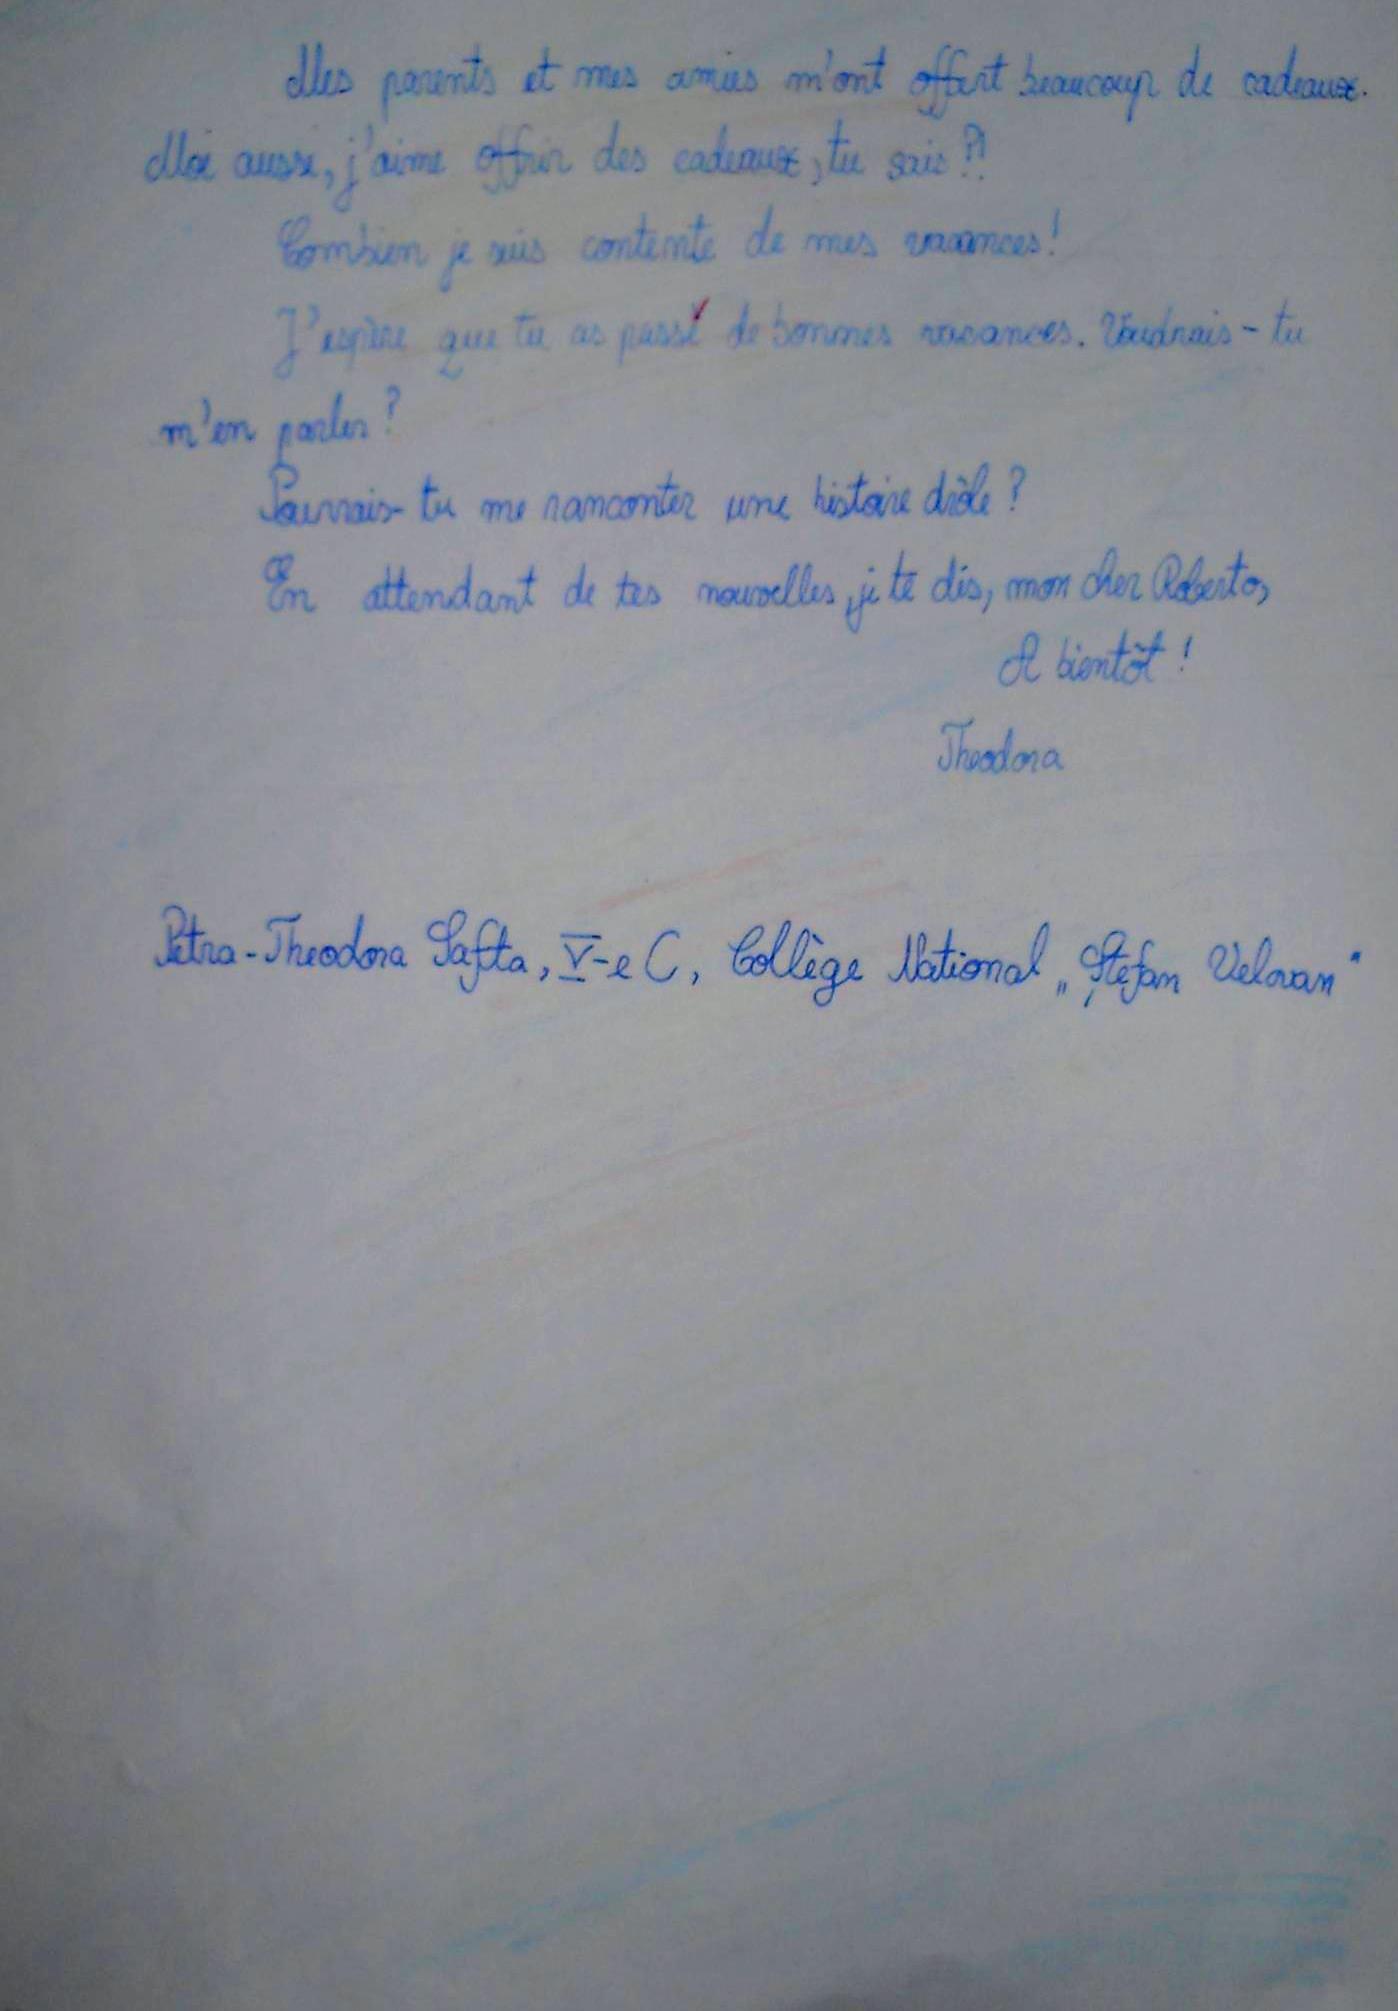 Mes parents et mes amies m'ont offert beaucoup de cadeaux.
Moi aussi, j'aime offrir des cadeaux, tu sais?!
Combien je suis contente de mes vacances!
J'espère que tu as passé de bonnes vacances. Voudrais-tu
m'en parler?
Pourrais-tu me ranconter une histoire drôle?
En attendant de tes nouvelles, je te dis, mon cher Roberto,
A bientôt!
Theodora
Petra-Theodora Safta, V-e C, Collège National „Ștefan Velovan"